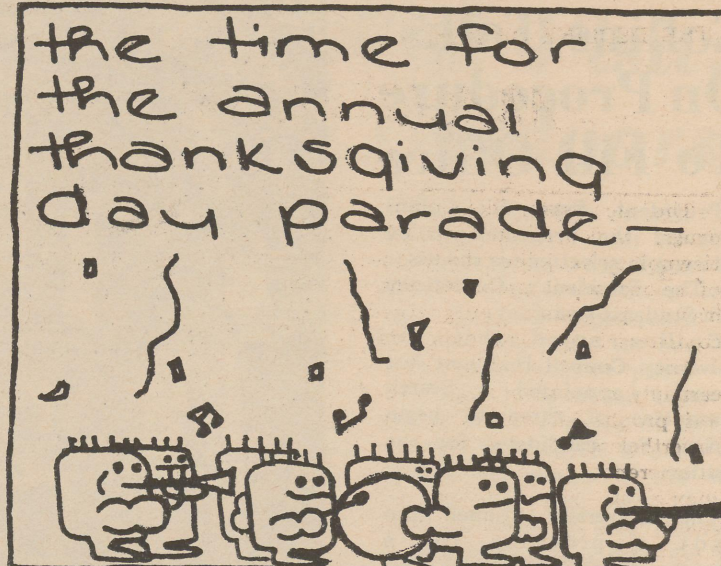 the time for
the annual
thanksgiving
day parade—